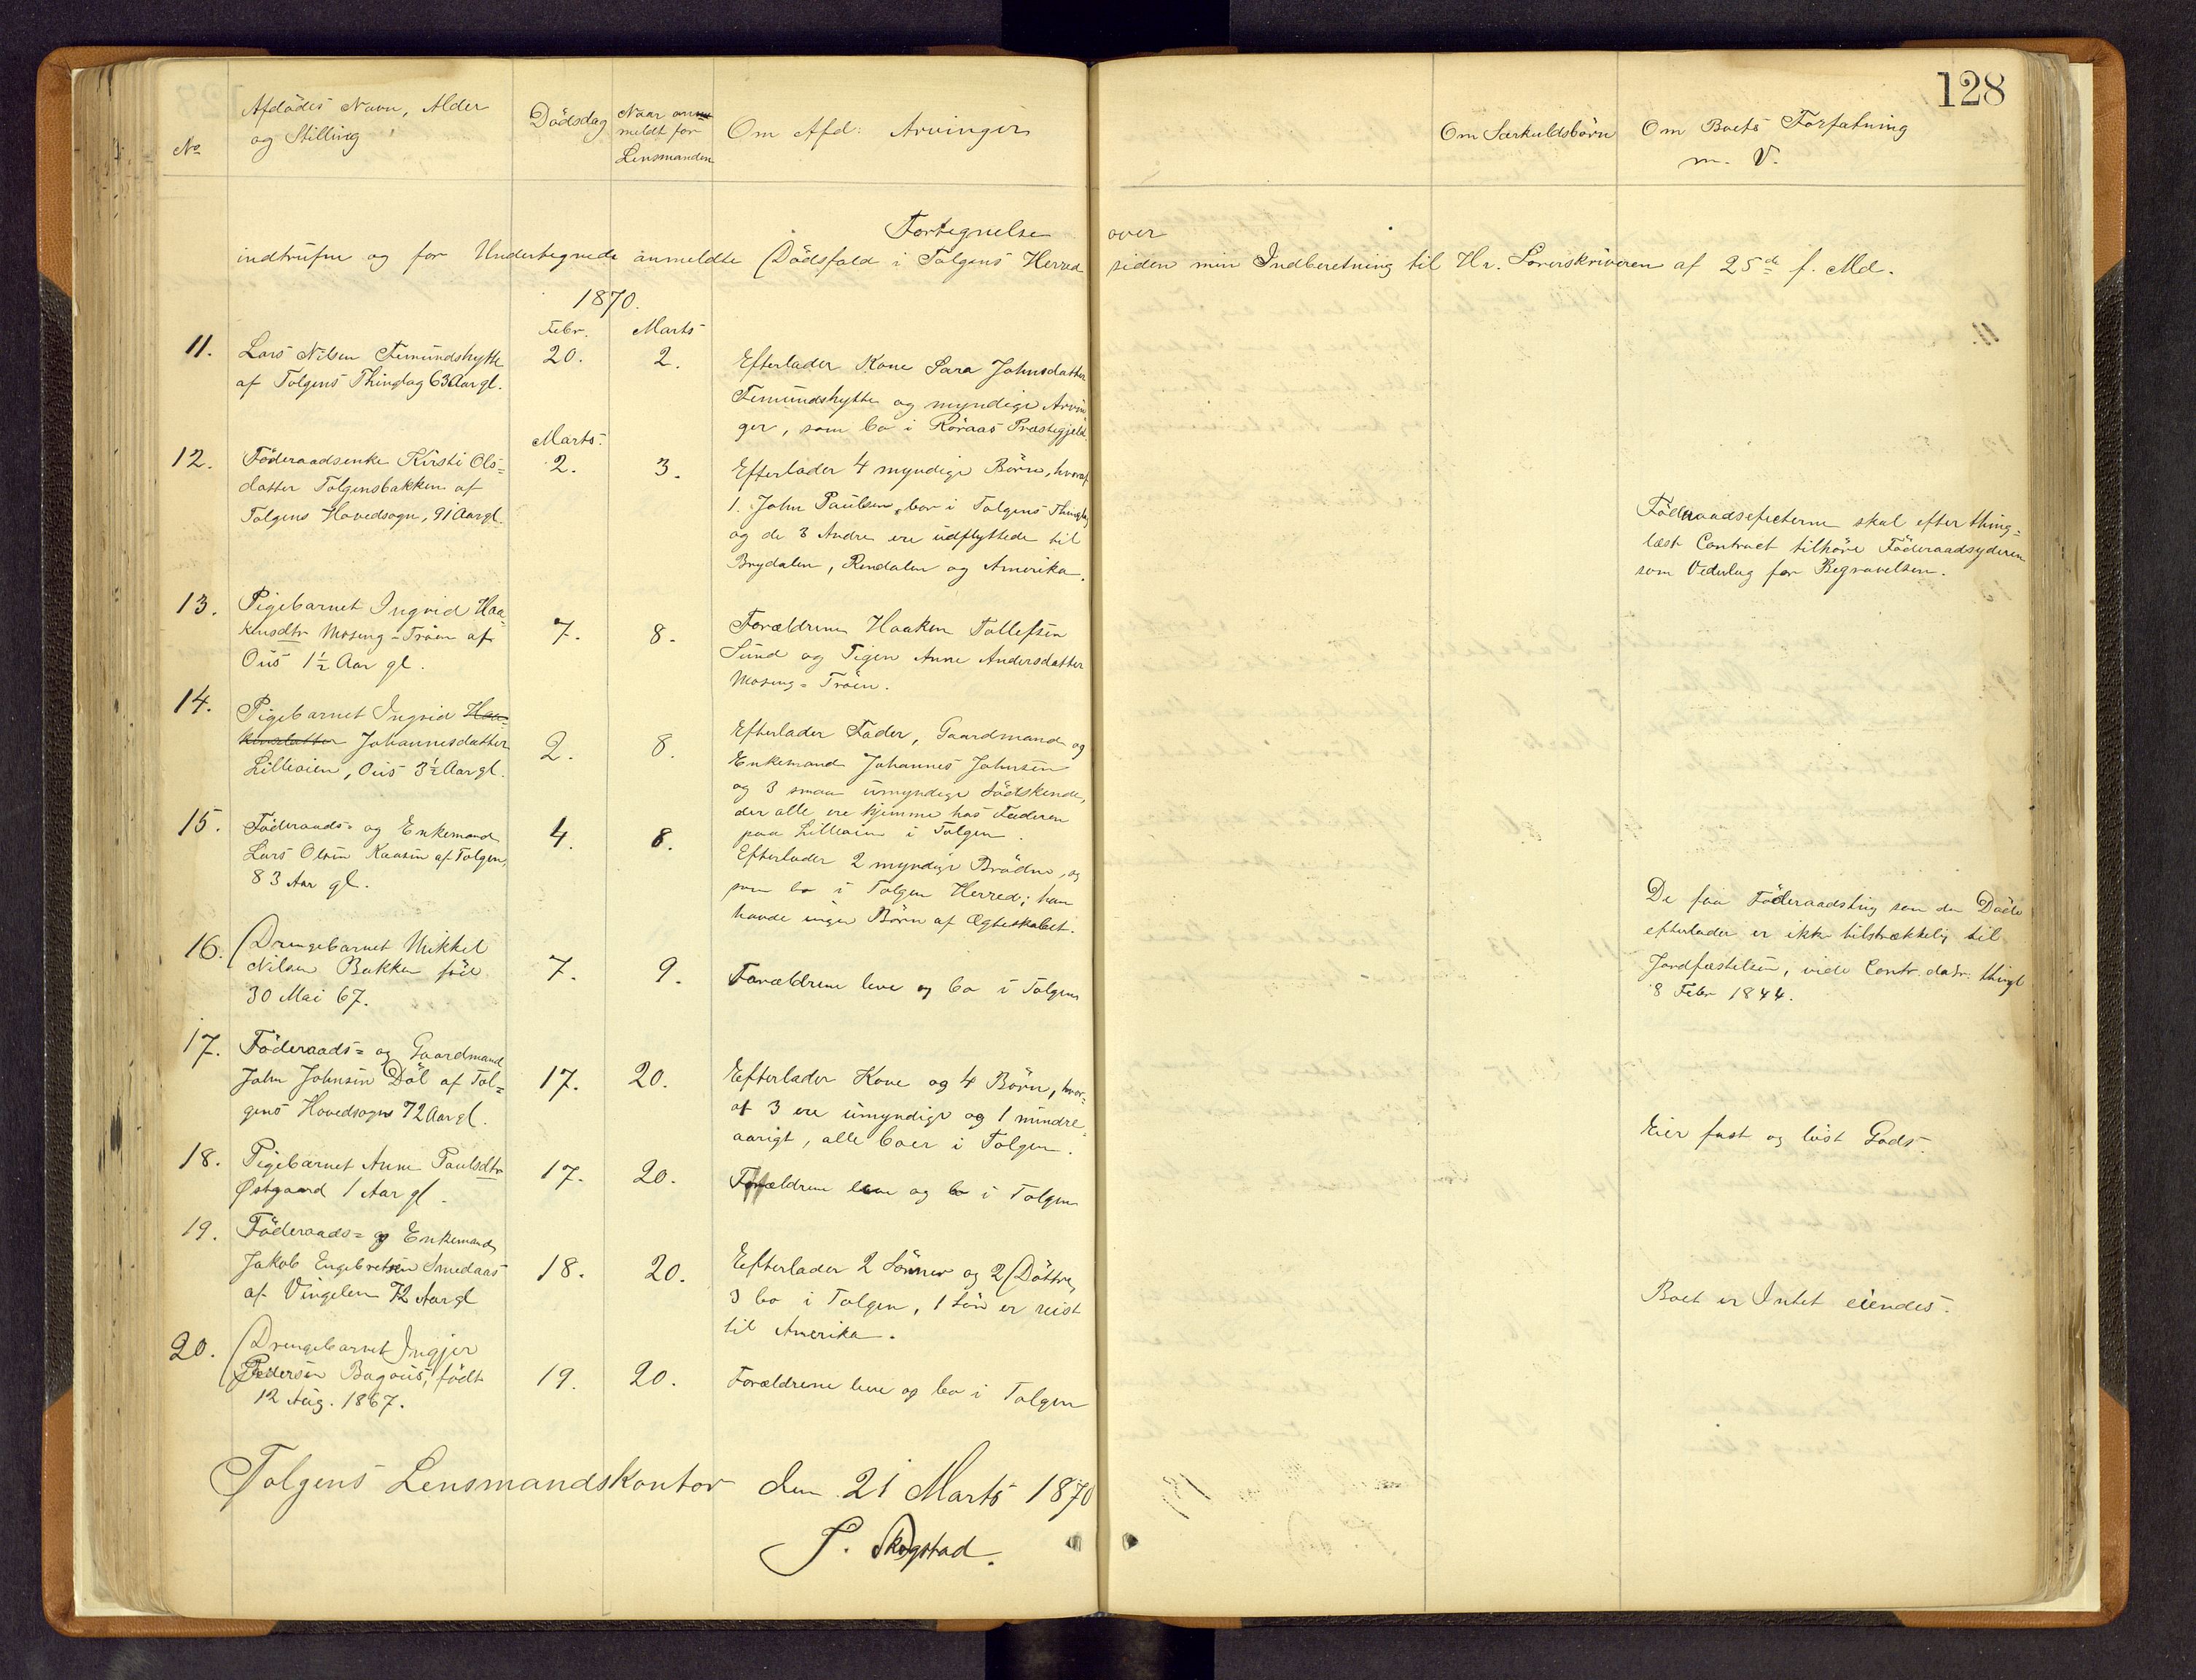 128
No
Afdödes Navn, Alder
og Stilling
Dödsdag
Naar an
meldt for
Lensmanden
Om Afd: Arvinger
Om Særkuldsbörn
Om Boets Forfatning
m. V.
Fortegnelse over
indtrufne og for Undertegnede anmeldte Dödsfald i Tolgens Herred siden min Indberetning til Hr. Sorenskriveren af 25de f. Md.
1870.
Febr. Marts
11. Lars Nilsen Femundshytte
af Tolgens Thinglag 63 Aar gl.
20. 2.
Efterlader Kone Sara Johnsdatter
Femundshytte og myndige Arvin
ger, som bo i Röraas Præstegjeld.
Marts.
12. Föderaadsenke Kirsti Ols=
datter Tolgensbakken af
Tolgens Hovedsogn, 91 Aar gl.
2. 3.
Efterlader 4 myndige Börn, hvoraf
1. John Paulsen, bor i Tolgens Thinglag
og de 3 Andre ere udflyttede til
Brydalen, Rendalen og Amerika.
Föderaadsefecterne skal efter thing=
læst Contract tilhöre Föderaadsyderen
som Vederlag for Begravelsen.
13. Pigebarnet Ingrid Haa
kensdtr Moseng=Tröen af
Öus 1½ Aar gl.
7. 8.
Forældrene Haaken Tollefsen
Sund og Pigen Anne Andersdatter
Moseng=Tröen.
14. Pigebarnet Ingrid Haa=
kensdatter Johannesdatter
Lilleöien, Öus 3½ Aar gl.
2. 8.
Efterlader Fader, Gaardmand og
Enkemand Johannes Johnsen
og 3 smaa umyndige Södskende,
der alle ere hjemme hos Faderen
paa Lilleöien i Tolgen.
15. Föderaads= og Enkemand
Lars Olsen Kaasen af Tolgen,
83 Aar gl.
4. 8.
Efterlader 2 myndige Brödre, og
som bo i Tolgen Herred; han
havde ingen Börn af Ægteskabet.
De faa Föderaadsting som den Döde
efterlader er ikke tilstrækkelig til
Jordfæstelsen, vide Contr. datr. thingl
8 Febr 1844.
16. Drengebarnet Mikkel
Nilsen Bakken föd
30 Mai 67.
7. 9.
Forældrene leve og bo i Tolgen
17. Föderaads= og Gaardmand
John Johnsen Döl af Tol=
gens Hovedsogn 72 Aar gl.
17. 20.
Efterlader Kone og 4 Börn, hvor=
af 3 ere umyndige og 1 mindre=
aarigt, alle boer i Tolgen.
Eier fast og löst Gods.
18. Pigebarnet Anne Paulsdtr
Østgaard 1 Aar gl.
17. 20.
Forældrene leve og bo i Tolgen
19. Föderaads= og Enkemand
Jakob Engebretsen Smedaas
af Vingelen 72 Aar gl
18. 20.
Efterlader 2 Sönner og 2 Döttre,
3 bo i Tolgen, 1 Sön er reist
til Amerika.
Boet er Intet eiendes.
20. Drengebarnet Ingjer
Pedersen Bagöus, födt
12 Aug. 1867.
19. 20.
Forældrene leve og bo i Tolgen
Tolgens Lensmandskontor den 21 Marts 1870
P. Skogstad.